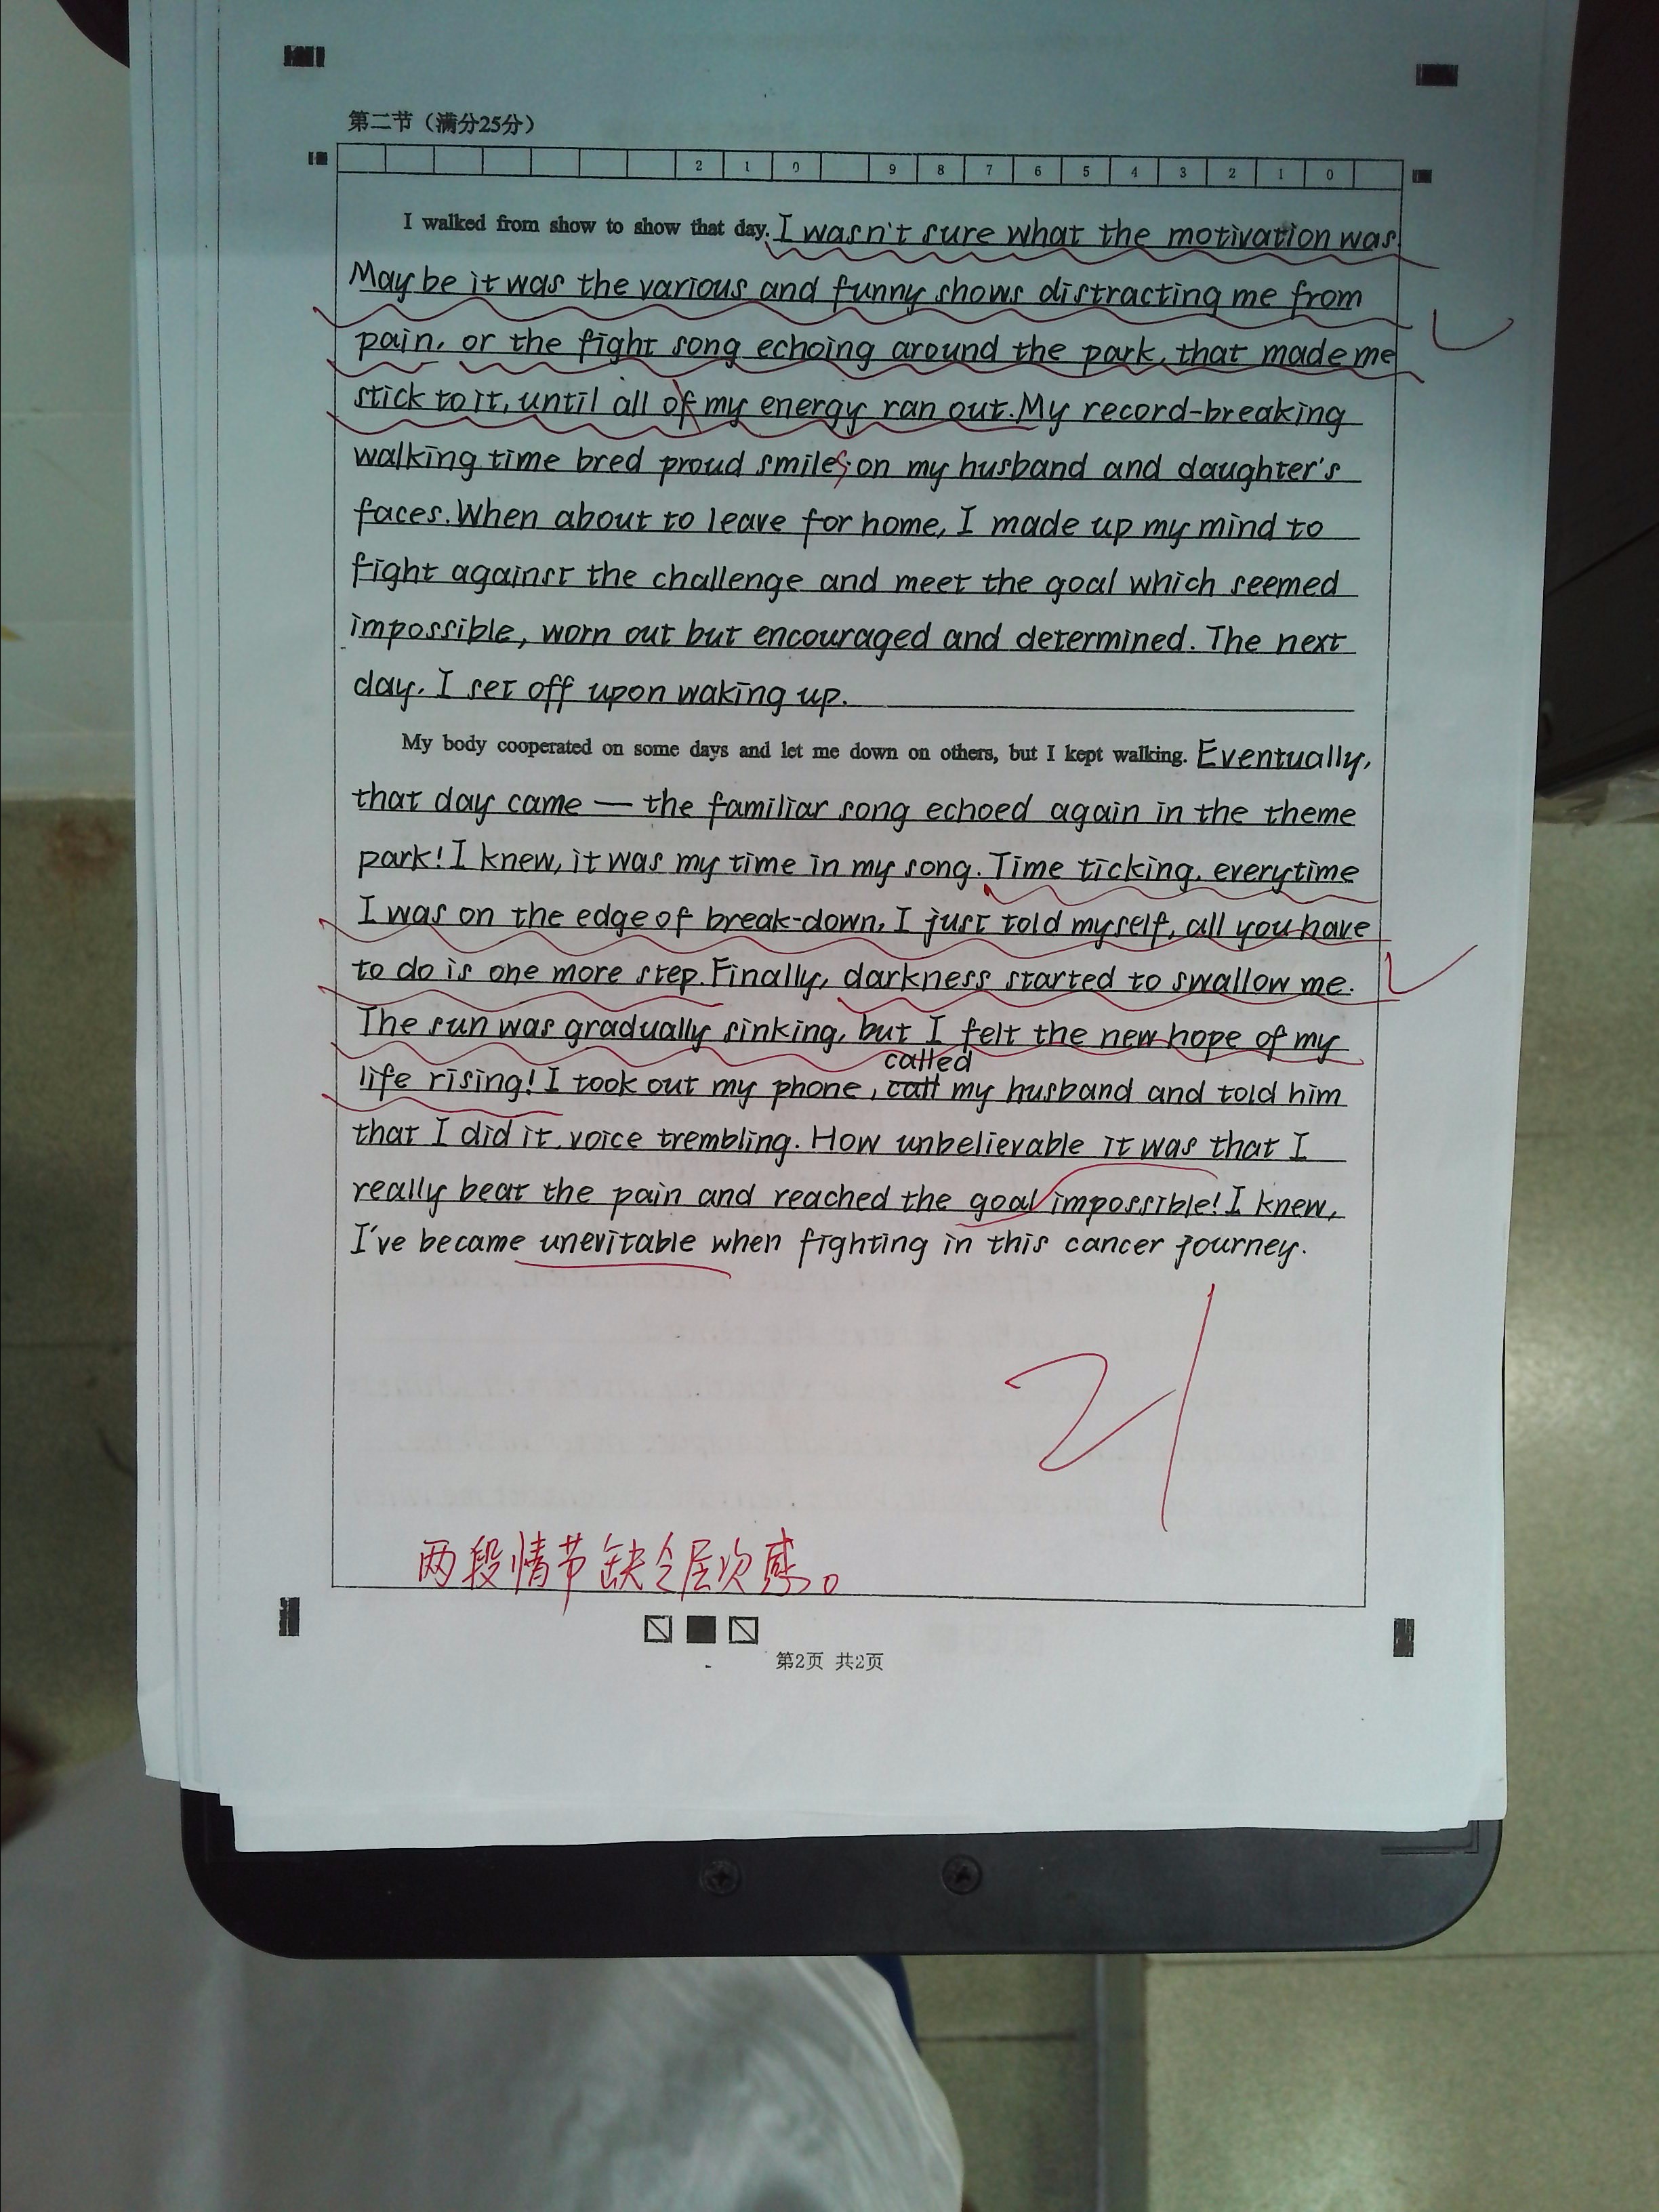 第二节（满分25分）
2 1 0 9 8 7 6 5 4 3 2 1 0
I walked from show to show that day. I wasn't sure what the motivation was.
Maybe it was the various and funny shows distracting me from
pain, or the fight song echoing around the park, that made me
stick to it, until all of my energy ran out. My record-breaking
walking time bred proud smiles on my husband and daughter's
faces. When about to leave for home, I made up my mind to
fight against the challenge and meet the goal which seemed
impossible, worn out but encouraged and determined. The next
day, I set off upon waking up.
My body cooperated on some days and let me down on others, but I kept walking. Eventually,
that day came — the familiar song echoed again in the theme
park! I knew, it was my time in my song. Time ticking, everytime
I was on the edge of break-down, I just told myself, all you have
to do is one more step. Finally, darkness started to swallow me.
The sun was gradually sinking, but I felt the new hope of my
called
life rising! I took out my phone, call my husband and told him
that I did it, voice trembling. How unbelievable it was that I
really beat the pain and reached the goal impossible! I knew,
I've became unevitable when fighting in this cancer journey.
21
两段情节缺乏层次感。
第2页 共2页